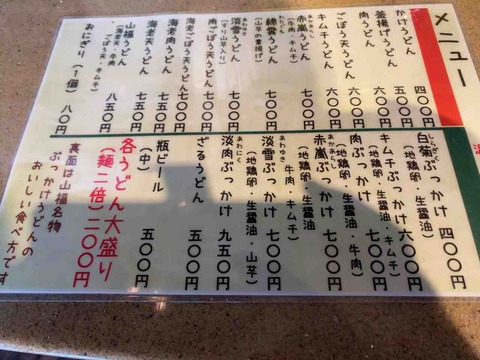 メニュー
かけうどん 四〇〇円
釜揚げうどん 五〇〇円
ごぼう天うどん 六〇〇円
肉うどん 六〇〇円
キムチうどん 六〇〇円
赤嵐うどん 七〇〇円
(牛肉・キムチ)
綿雲うどん 七〇〇円
(山芋の素揚げ)
淡雪うどん 七〇〇円
(すり山芋入り)
肉ごぼう天うどん 七〇〇円
海老天うどん 七〇〇円
海老肉うどん 七五〇円
海老ごぼう天うどん 七五〇円
山福うどん 八五〇円
(海老天・牛肉
ごぼう天・キムチ)
おにぎり(1個) 八〇円
白菊ぶっかけ 四〇〇円
(地鶏卵・生醤油)
キムチぶっかけ 六〇〇円
(地鶏卵・生醤油・キムチ)
肉ぶっかけ 七〇〇円
(地鶏卵・生醤油・牛肉)
赤嵐ぶっかけ
(地鶏卵・生醤油
牛肉・キムチ)
淡雪ぶっかけ 七〇〇円
(地鶏卵・生醤油・山芋)
淡肉ぶっかけ 九五〇円
ざるうどん 五〇〇円
瓶ビール
(中) 五〇〇円
各うどん大盛り
(麺二倍)二〇〇円
裏面は山福名物
ぶっかけうどんの
おいしい食べ方です